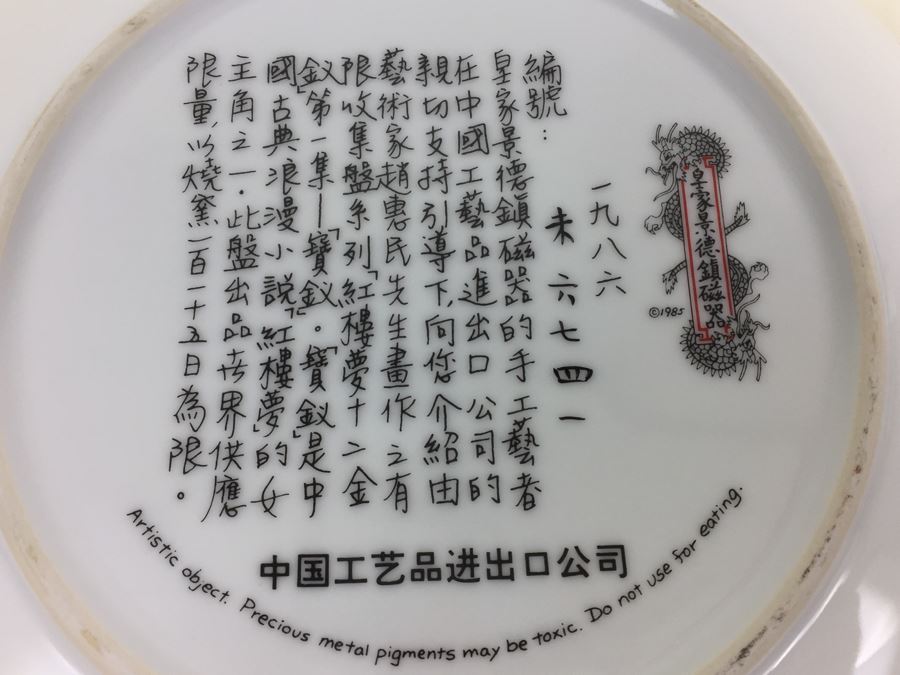 皇家景德鎮磁器
©1985
一九八六
未六七四一
編號:
皇家景德鎮磁器的手工藝者
在中國工藝品進出口公司的
親切支持引導下,向您介紹由
藝術家趙惠民先生畫作之有
限收集盤系列「紅樓夢十二金
釵」第一集—「寶釵」。「寶釵」是中
國古典浪漫小說「紅樓夢」的女
主角之一.此盤出品世界供應
限量,以燒窯一百一十五日為限。
中国工艺品进出口公司
Artistic object. Precious metal pigments may be toxic. Do not use for eating.